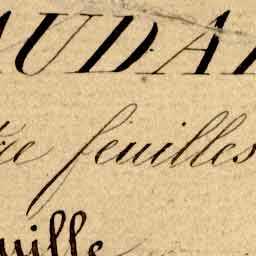 AUDA
tre feuilles
uille